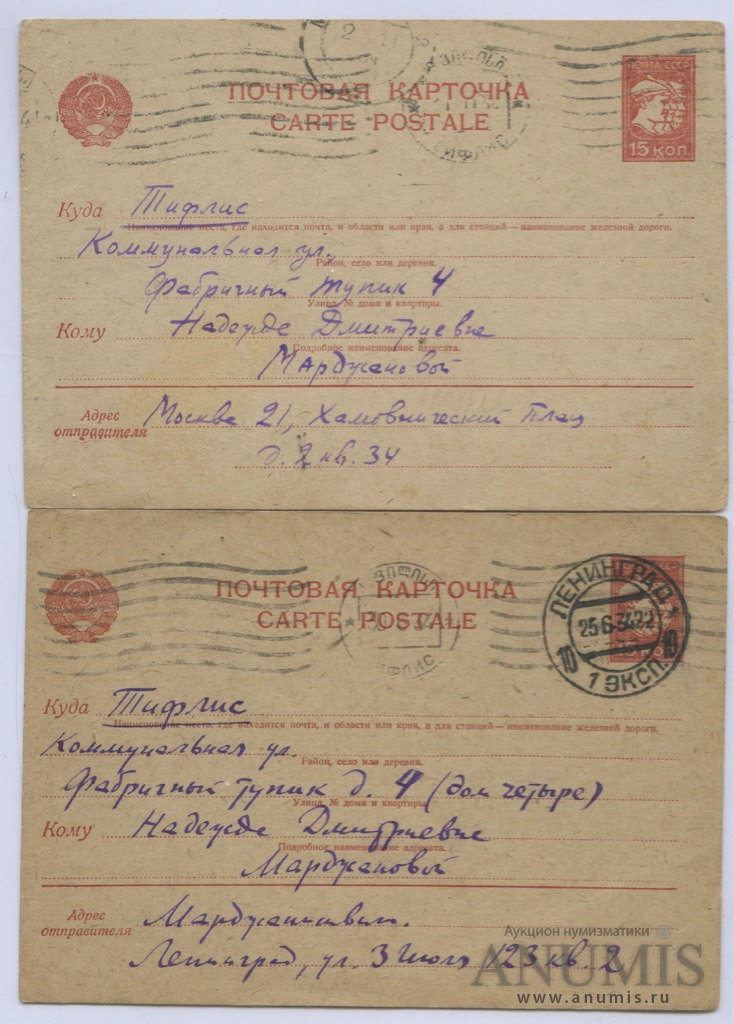 ПОЧТОВАЯ КАРТОЧКА
CARTE POSTALE
ПОЧТА СССР
15 КОП.
Куда Тифлис
Наименование места, где находится почта, и области или края, а для станций — наименование железной дороги.
Коммунальная ул.
Район, село или деревня.
Фабричный тупик 4
Улица, № дома и квартиры.
Кому Надежде Дмитриевне
Подробное наименование адресата.
Марджановой
Адрес отправителя Москва 21, Хамовнический Плац
д. 2 кв. 34
ПОЧТОВАЯ КАРТОЧКА
CARTE POSTALE
ЛЕНИНГРАД
25 6 34 22
10 10
1 ЭКСП.
Куда Тифлис
Наименование места, где находится почта, и области или края, а для станций — наименование железной дороги.
Коммунальная ул.
Район, село или деревня.
Фабричный тупик д. 4 (дом четыре)
Улица, № дома и квартиры.
Кому Надежде Дмитриевне
Подробное наименование адресата.
Марджановой
Адрес отправителя
Ленинград, ул. 3 Июля 123 кв. 2
Аукцион нумизматики
ANUMIS
www.anumis.ru